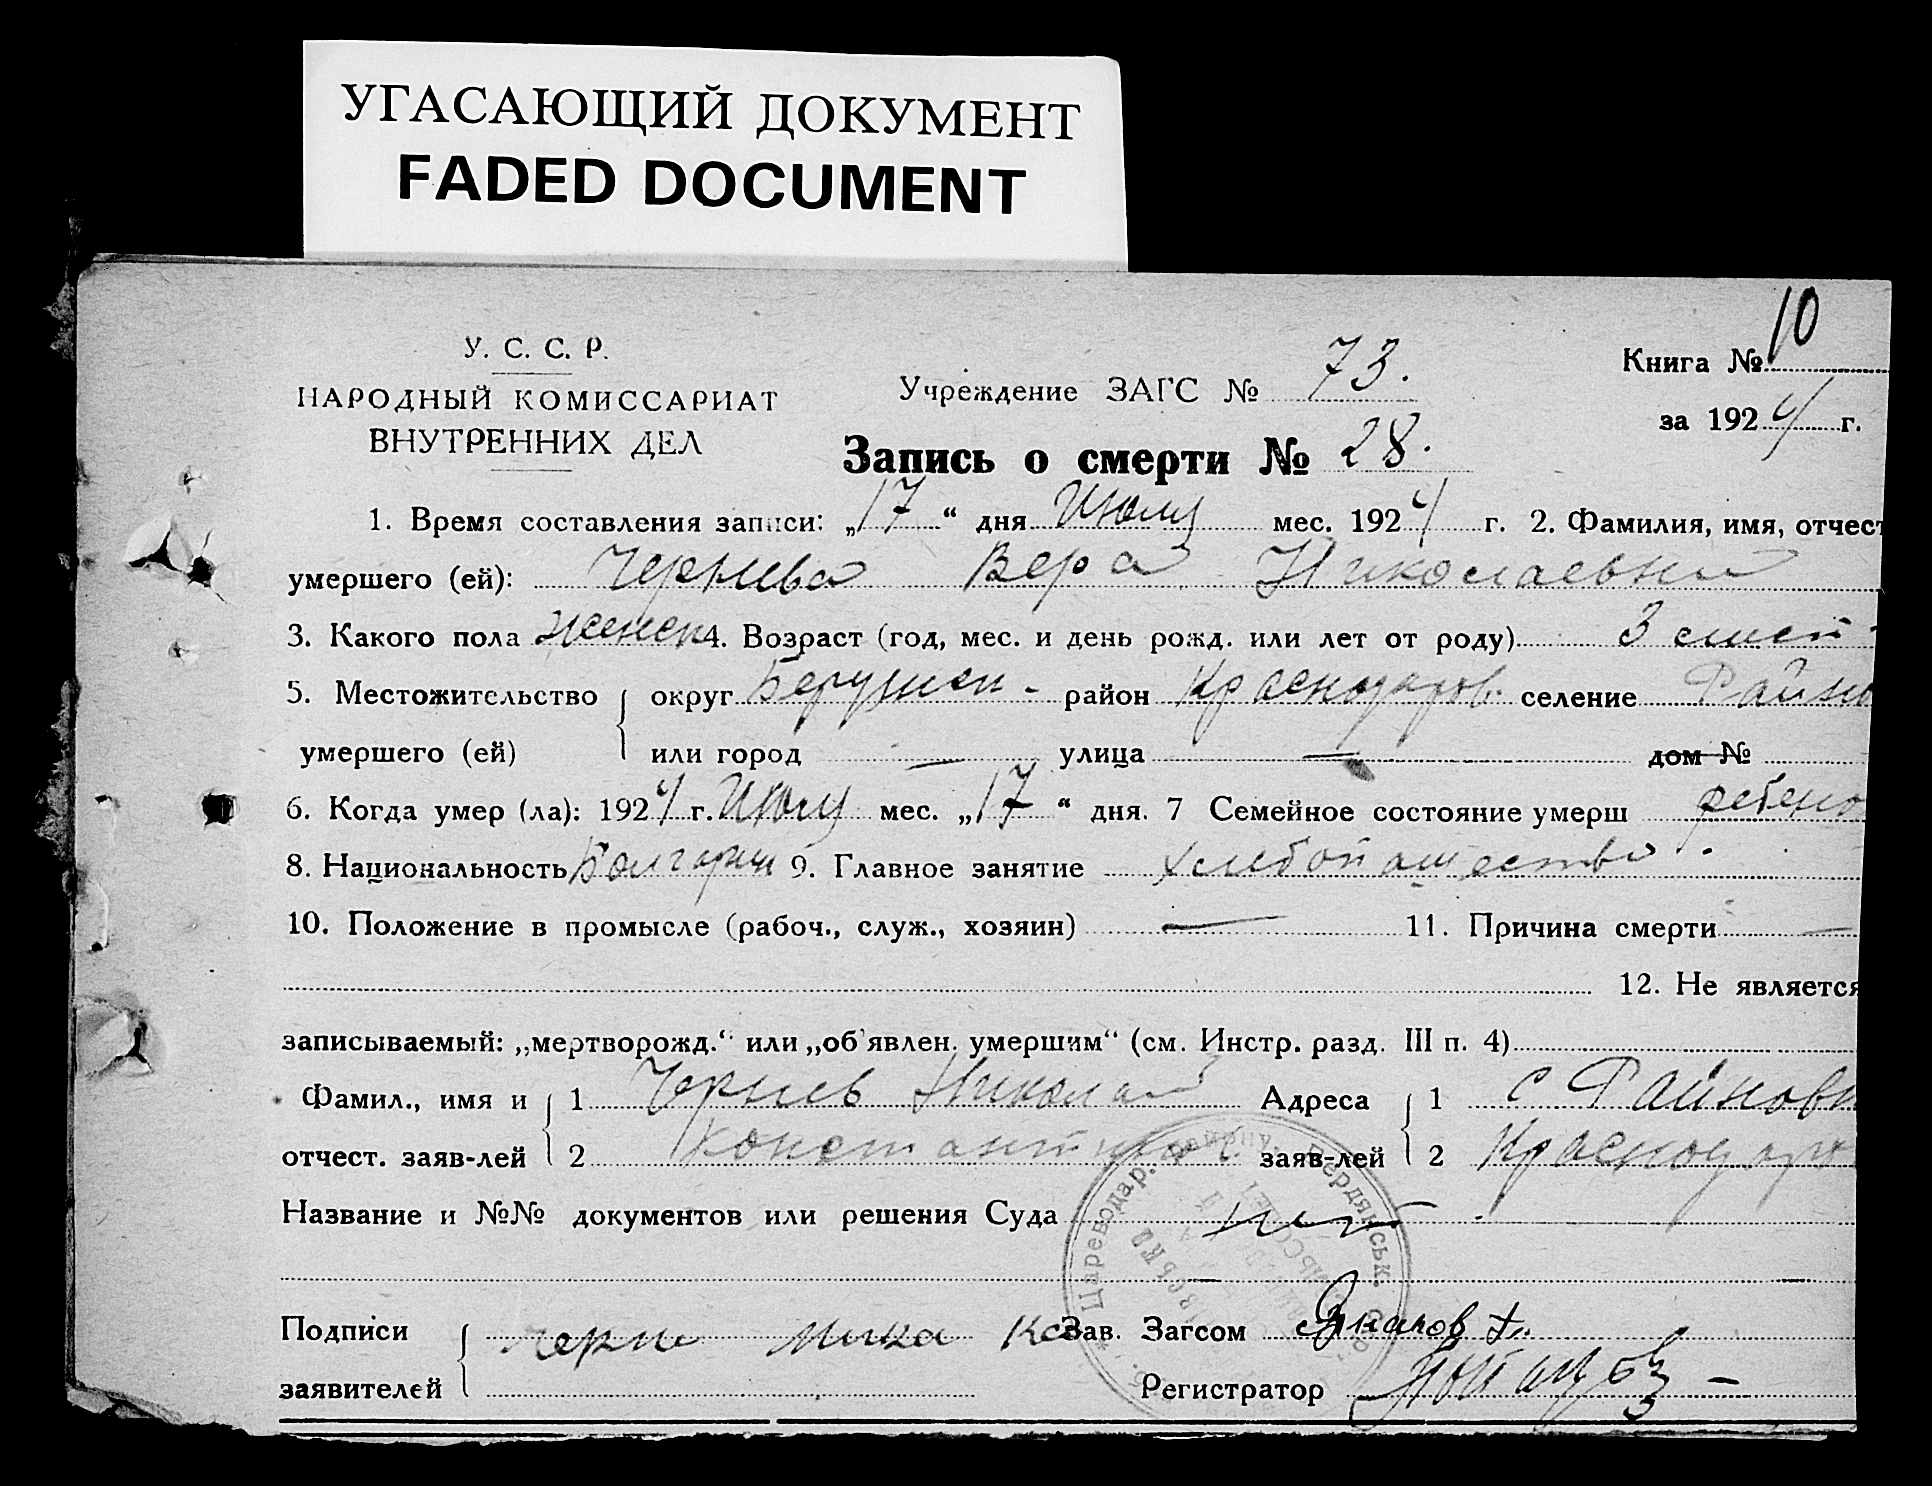 УГАСАЮЩИЙ ДОКУМЕНТ
FADED DOCUMENT
У. С. С. Р.
НАРОДНЫЙ КОМИССАРИАТ
ВНУТРЕННИХ ДЕЛ
Учреждение ЗАГС № 73.
Запись о смерти № 28.
Книга № 10
за 1924 г.
1. Время составления записи: „17“ дня Июля мес. 1924 г. 2. Фамилия, имя, отчест
умершего (ей): Чернева Вера Николаевна
3. Какого пола женск 4. Возраст (год, мес. и день рожд. или лет от роду) 3
5. Местожительство округ район Краснодаров. селение Райно
умершего (ей) или город — улица — дом №
6. Когда умер (ла): 1924 г. Июля мес. „17“ дня. 7 Семейное состояние умерш ребено
8. Национальность Болгарин 9. Главное занятие хлебопашество.
10. Положение в промысле (рабоч., служ., хозяин) — 11. Причина смерти —
12. Не является
записываемый: „мертворожд.“ или „об'явлен. умершим“ (см. Инстр. разд. III п. 4)
Фамил., имя и 1 Чернев Николай Адреса 1 с Райновк
отчест. заяв-лей 2 Константинов. заяв-лей 2 Краснодаро
Название и №№ документов или решения Суда нет
Подписи Зав. Загсом
заявителей Регистратор
* Цареводар. району, Бердянськ.